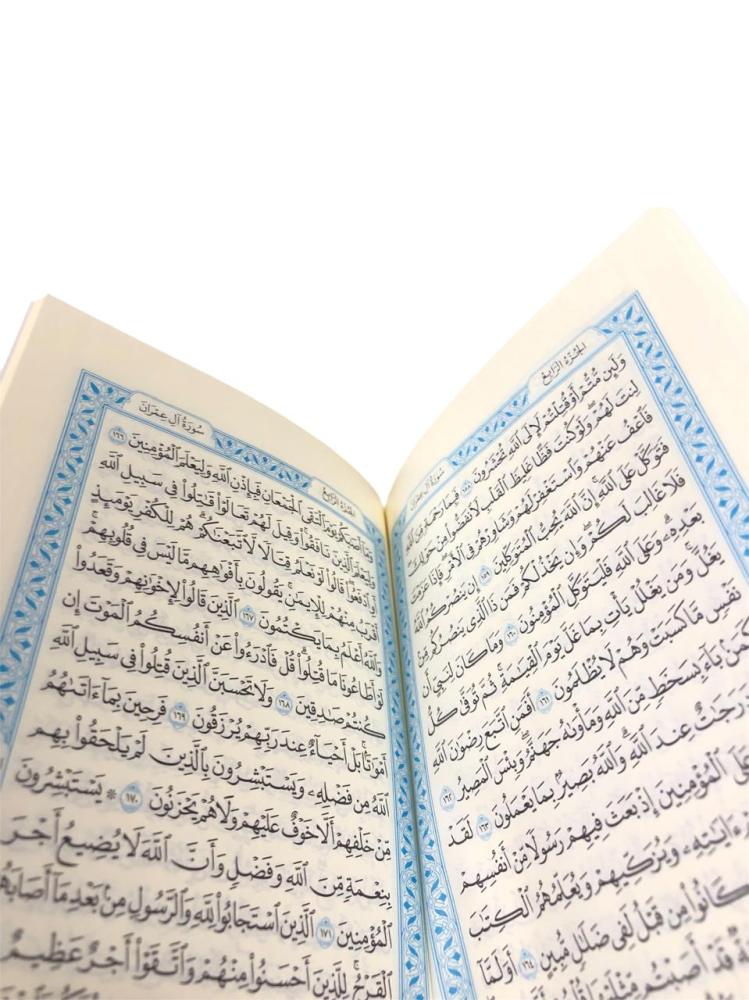 الجزء الرابع
سورة آل عمران
وَلَئِن مُّتُّمْ أَوْ قُتِلْتُمْ لَإِلَى ٱللَّهِ تُحْشَرُونَ ١٥٨ فَبِمَا رَحْمَةٍ مِّنَ ٱللَّهِ
لِنتَ لَهُمْ وَلَوْ كُنتَ فَظًّا غَلِيظَ ٱلْقَلْبِ لَٱنفَضُّوا۟ مِنْ حَوْلِكَ
فَٱعْفُ عَنْهُمْ وَٱسْتَغْفِرْ لَهُمْ وَشَاوِرْهُمْ فِى ٱلْأَمْرِ فَإِذَا عَزَمْتَ
فَتَوَكَّلْ عَلَى ٱللَّهِ إِنَّ ٱللَّهَ يُحِبُّ ٱلْمُتَوَكِّلِينَ ١٥٩ إِن يَنصُرْكُمُ ٱللَّهُ
فَلَا غَالِبَ لَكُمْ وَإِن يَخْذُلْكُمْ فَمَن ذَا ٱلَّذِى يَنصُرُكُم مِّنۢ
بَعْدِهِۦ وَعَلَى ٱللَّهِ فَلْيَتَوَكَّلِ ٱلْمُؤْمِنُونَ ١٦٠ وَمَا كَانَ لِنَبِىٍّ أَن
يَغُلَّ وَمَن يَغْلُلْ يَأْتِ بِمَا غَلَّ يَوْمَ ٱلْقِيَٰمَةِ ثُمَّ تُوَفَّىٰ كُلُّ
نَفْسٍ مَّا كَسَبَتْ وَهُمْ لَا يُظْلَمُونَ ١٦١ أَفَمَنِ ٱتَّبَعَ رِضْوَٰنَ ٱللَّهِ
كَمَنۢ بَآءَ بِسَخَطٍ مِّنَ ٱللَّهِ وَمَأْوَىٰهُ جَهَنَّمُ وَبِئْسَ ٱلْمَصِيرُ ١٦٢
دَرَجَٰتٌ عِندَ ٱللَّهِ وَٱللَّهُ بَصِيرٌۢ بِمَا يَعْمَلُونَ ١٦٣ لَقَدْ
عَلَى ٱلْمُؤْمِنِينَ إِذْ بَعَثَ فِيهِمْ رَسُولًا مِّنْ أَنفُسِهِمْ
ءَايَٰتِهِۦ وَيُزَكِّيهِمْ وَيُعَلِّمُهُمُ ٱلْكِتَٰبَ
كَانُوا۟ مِن قَبْلُ لَفِى ضَلَٰلٍ مُّبِينٍ ١٦٤ أَوَلَمَّآ
قَدْ أَصَبْتُم مِّثْلَيْهَا
سورة آل عمران
الجزء الرابع
وَمَآ أَصَٰبَكُمْ يَوْمَ ٱلْتَقَى ٱلْجَمْعَانِ فَبِإِذْنِ ٱللَّهِ وَلِيَعْلَمَ ٱلْمُؤْمِنِينَ ١٦٦
وَلِيَعْلَمَ ٱلَّذِينَ نَافَقُوا۟ وَقِيلَ لَهُمْ تَعَالَوْا۟ قَٰتِلُوا۟ فِى سَبِيلِ ٱللَّهِ
أَوِ ٱدْفَعُوا۟ قَالُوا۟ لَوْ نَعْلَمُ قِتَالًا لَّٱتَّبَعْنَٰكُمْ هُمْ لِلْكُفْرِ يَوْمَئِذٍ
أَقْرَبُ مِنْهُمْ لِلْإِيمَٰنِ يَقُولُونَ بِأَفْوَٰهِهِم مَّا لَيْسَ فِى قُلُوبِهِمْ
وَٱللَّهُ أَعْلَمُ بِمَا يَكْتُمُونَ ١٦٧ ٱلَّذِينَ قَالُوا۟ لِإِخْوَٰنِهِمْ وَقَعَدُوا۟
لَوْ أَطَاعُونَا مَا قُتِلُوا۟ قُلْ فَٱدْرَءُوا۟ عَنْ أَنفُسِكُمُ ٱلْمَوْتَ إِن
كُنتُمْ صَٰدِقِينَ ١٦٨ وَلَا تَحْسَبَنَّ ٱلَّذِينَ قُتِلُوا۟ فِى سَبِيلِ ٱللَّهِ
أَمْوَٰتًۢا بَلْ أَحْيَآءٌ عِندَ رَبِّهِمْ يُرْزَقُونَ ١٦٩ فَرِحِينَ بِمَآ ءَاتَىٰهُمُ
ٱللَّهُ مِن فَضْلِهِۦ وَيَسْتَبْشِرُونَ بِٱلَّذِينَ لَمْ يَلْحَقُوا۟ بِهِم
مِّنْ خَلْفِهِمْ أَلَّا خَوْفٌ عَلَيْهِمْ وَلَا هُمْ يَحْزَنُونَ ١٧٠ * يَسْتَبْشِرُونَ
بِنِعْمَةٍ مِّنَ ٱللَّهِ وَفَضْلٍ وَأَنَّ ٱللَّهَ لَا يُضِيعُ أَجْرَ
ٱلْمُؤْمِنِينَ ١٧١ ٱلَّذِينَ ٱسْتَجَابُوا۟ لِلَّهِ وَٱلرَّسُولِ مِنۢ بَعْدِ مَآ أَصَابَهُمُ
ٱلْقَرْحُ لِلَّذِينَ أَحْسَنُوا۟ مِنْهُمْ وَٱتَّقَوْا۟ أَجْرٌ عَظِيمٌ